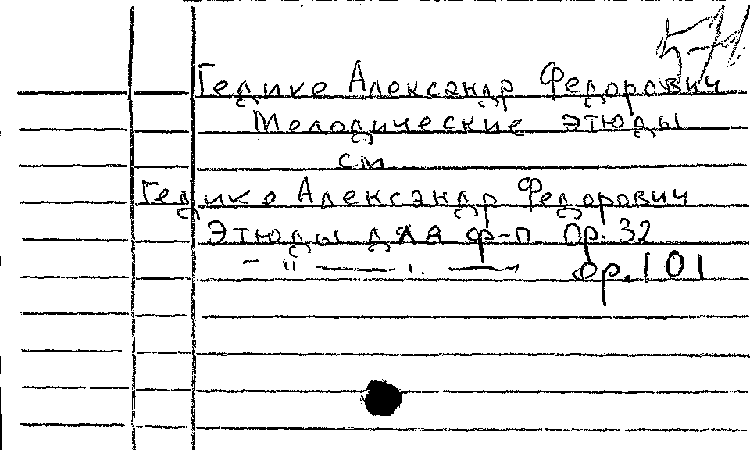 571
Гедике Александр Федорович
Мелодические этюды
см.
Гедике Александр Федорович
Этюды для ф-п. Ор. 32
— " — " — ор. 101